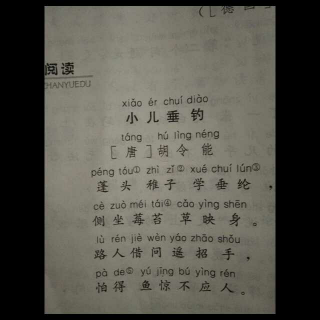 阅读
CHANYUEDU
xiǎo ér chuí diào
小儿垂钓
táng hú lìng néng
[唐]胡令能
péng tóu① zhì zǐ② xué chuí lún③
蓬头稚子学垂纶,
cè zuò méi tái④ cǎo yìng shēn
侧坐莓苔草映身。
lù rén jiè wèn yáo zhāo shǒu
路人借问遥招手,
pà dé⑤ yú jīng bù yìng rén
怕得鱼惊不应人。